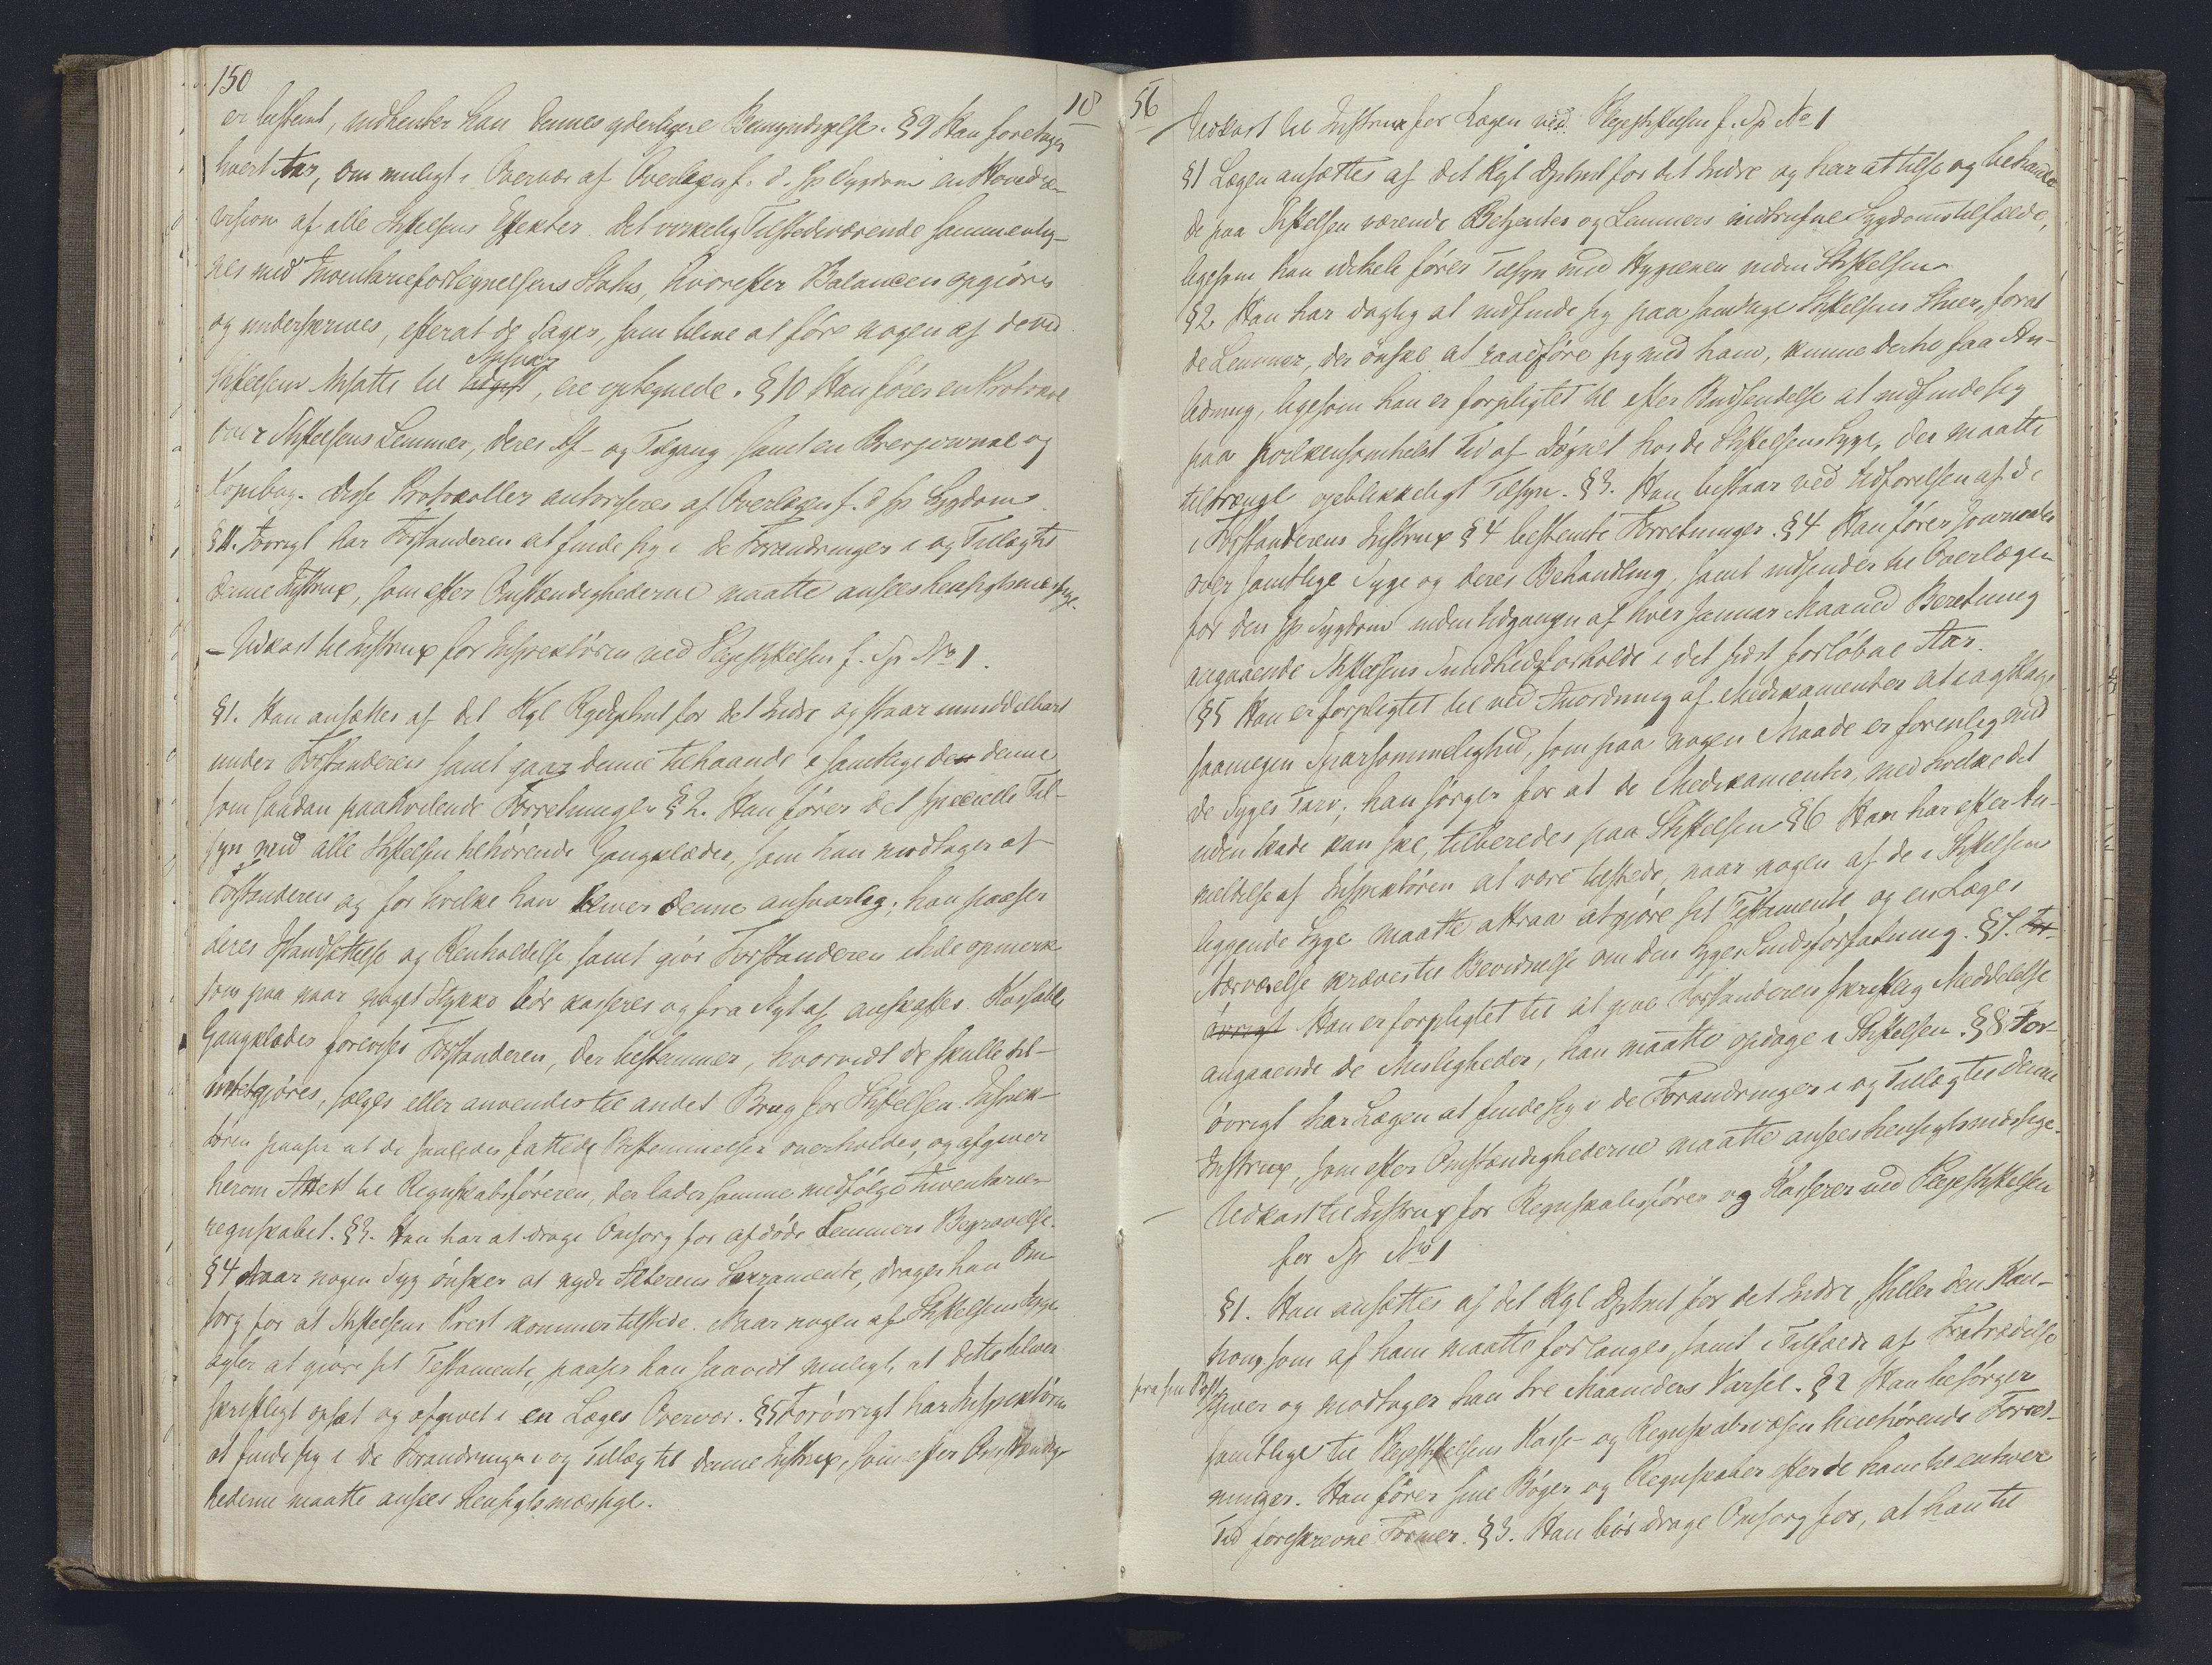 150
18
er bestemt, indhenter han dennes yderligere Bemyndigelse. §9 Han foretager
hvert Aar, om muligt i Overvær af Overlægen f. d. sp Sygdom en Hovedre-
vision af alle Stiftelsens Effekter. Det virkelig Tilstedeværende sammenlig-
nes med Inventariefortegnelsens Status, hvorefter Balancen opgjøres
og underskrives, efterat de Sager, som blive at føre nogen af de ved
Ansvar
Stiftelsen Ansatte til Udgift, ere optegnede. §10 Han fører en Protokol
over Stiftelsens Lemmer, deres Af- og Tilgang samt en Brevjournal og
Kopibog. Disse Protokoller autoriseres af Overlægen f. d sp Sygdom.
§11. Iøvrigt har Forstanderen at finde sig i de Forandringer i og Tillæg til
denne Instrux, som efter Omstændighederne maatte ansees hensigtsmæssige.
- Udkast til Instrux for Inspektøren ved Plejestiftelsen f. Sp No 1.
§1. Han ansættes af det Kgl Rgsdptmt for det Indre og staar umiddelbart
under Forstanderen samt gaar denne tilhaande i samtlige den denne
som saadan paahvilende Forretninger §2. Han fører det specielle Til-
syn med alle Stiftelsen tilhørende Gangklæder, som han modtager af
Forstanderen og for hvilke han bliver denne ansvarlig; han paaser
deres Istandsættelse og Renholdelse samt gjør Forstanderen itide opmærk
som paa naar noget Stykke bør kasseres og fra Nyt af anskaffes. Kassable
Gangklæder forevises Forstanderen, der bestemmer, hvorvidt de skulle til-
intetgjøres, sælges eller anvendes til andet Brug for Stiftelsen. Inspek-
tøren paaser at de saaledes fattede Bestemmelser overholdes, og afgiver
herom Attest til Regnskabsføreren, der lader samme medfølge Inventarie-
regnskabet. §3. Han har at drage Omsorg for afdøde Lemmers Begravelse.
§4 Naar nogen Syg ønsker at nyde Alterens Sakramente, drager han Om-
sorg for at Stiftelsens Prest kommer tilstede. Naar nogen af Stiftelsens Syge
agter at gjøre sit Testamente, paaser han saavidt muligt, at dette bliver
skriftligt opsat og afgivet i en Læges Overvær. §5 Forøvrigt har Inspektøren
at finde sig i de Forandringer i og Tillæg til denne Instrux, som efter Omstændig-
hederne maatte ansees hensigtsmæssige.
56
Udkast til Instrux for Lægen ved Plejestiftelsen f. Sp No 1
§1 Lægen ansættes af det Kgl Dptmt for det Indre og har at tilse og behandle
de paa Stiftelsen værende Betjenter og Lemmers indtrufne Sygdomstilfælde,
ligesom han idethele fører Tilsyn med Hygienen inden Stiftelsen
§2 Han har daglig at indfinde sig paa samtlige Stiftelsens Stuer, forat
de Lemmer, der ønske at raadføre sig med ham, kunne dertil faa An-
ledning, ligesom han er forpligtet til efter Budsendelse at indfinde sig
paa hvilkensomhelst Tid af Døgnet hos de Stiftelsens Syge, der maatte
tiltrænge øjeblikkeligt Tilsyn. §3. Han bistaar ved Udførelsen af de
i Forstanderens Instrux §4 bestemte Forretninger. §4 Han fører Journaler
over samtlige Syge og deres Behandling, samt indsender til Overlægen
for den sp Sygdom inden Udgangen af hver Januar Maaned Beretning
angaaende Stiftelsens Sundhedsforholde i det sidst forløbne Aar.
§5 Han er forpligtet til ved Anordning af Medikamenter at iagttage
saamegen Sparsommelighed, som paa nogen Maade er forenlig med
de Syges Tarv; han sørger for at de Medikamenter, med hvilke det
uden Skade kan ske, tilberedes paa Stiftelsen §6 Han har efter An-
meldelse af Inspektøren at være tilstede, naar nogen af de i Stiftelsen
liggende Syge maatte attraa at gjøre sit Testamente og en Læges
Nærværelse kræves til Bevidnelse om den Syges Sindsforfatning. §7. For-
øvrigt Han er forpligtet til at give Forstanderen skriftlig Meddelelse
angaaende de Misligheder, han maatte opdage i Stiftelsen. §8 For-
øvrigt har Lægen at finde sig i de Forandringer i og Tillæg til denne
Instrux, som efter Omstændighederne maatte ansees hensigtsmæssige.
- Udkast til Instrux for Regnskabsfører og Kasserer ved Plejestiftelsen
for Sp No 1
§1. Han ansættes af det Kgl Dptmt for det Indre, stiller den Kau-
tion, som af ham maatte forlanges, samt i Tilfælde af Fratrædelse
fra sin Post
giver og modtager han tre Maaneders Varsel. §2 Han besørger
samtlige til Plejestiftelsens Kasse- og Regnskabsvæsen henhørende Forret-
ninger. Han fører sine Bøger og Regnskaber efter de ham til enhver
Tid foreskrevne Former. §3. Han bør drage Omsorg for, at han til